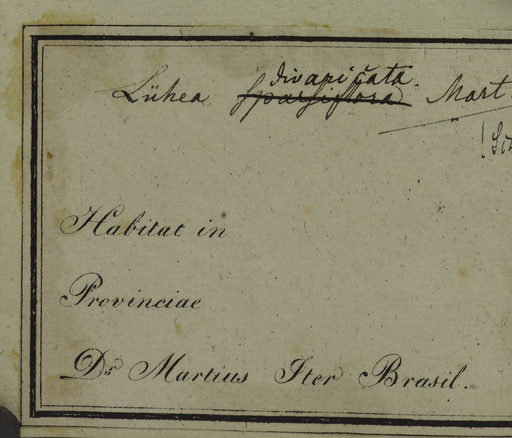 divaricata
Lühea ~~sparsiflora~~ Mart
Habitat in
Provinciae
Dr Martius Iter Brasil.